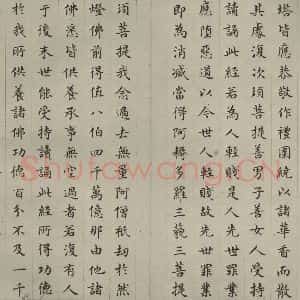 塔皆應恭敬作禮圍繞以諸華香而散
其處復次須菩提善男子善女人受持
讀誦此經若為人輕賤是人先世罪業
應墮惡道以今世人輕賤故先世罪業
即為消滅當得阿耨多羅三藐三菩提
須菩提我念過去無量阿僧祇劫於然
燈佛前得值八伯四千萬億那由他諸
佛悉皆供養承事無空過者若復有人
于後末世能受持讀誦此經所得功德
於我所供養諸佛功德百分不及一千
Shufawang.CN